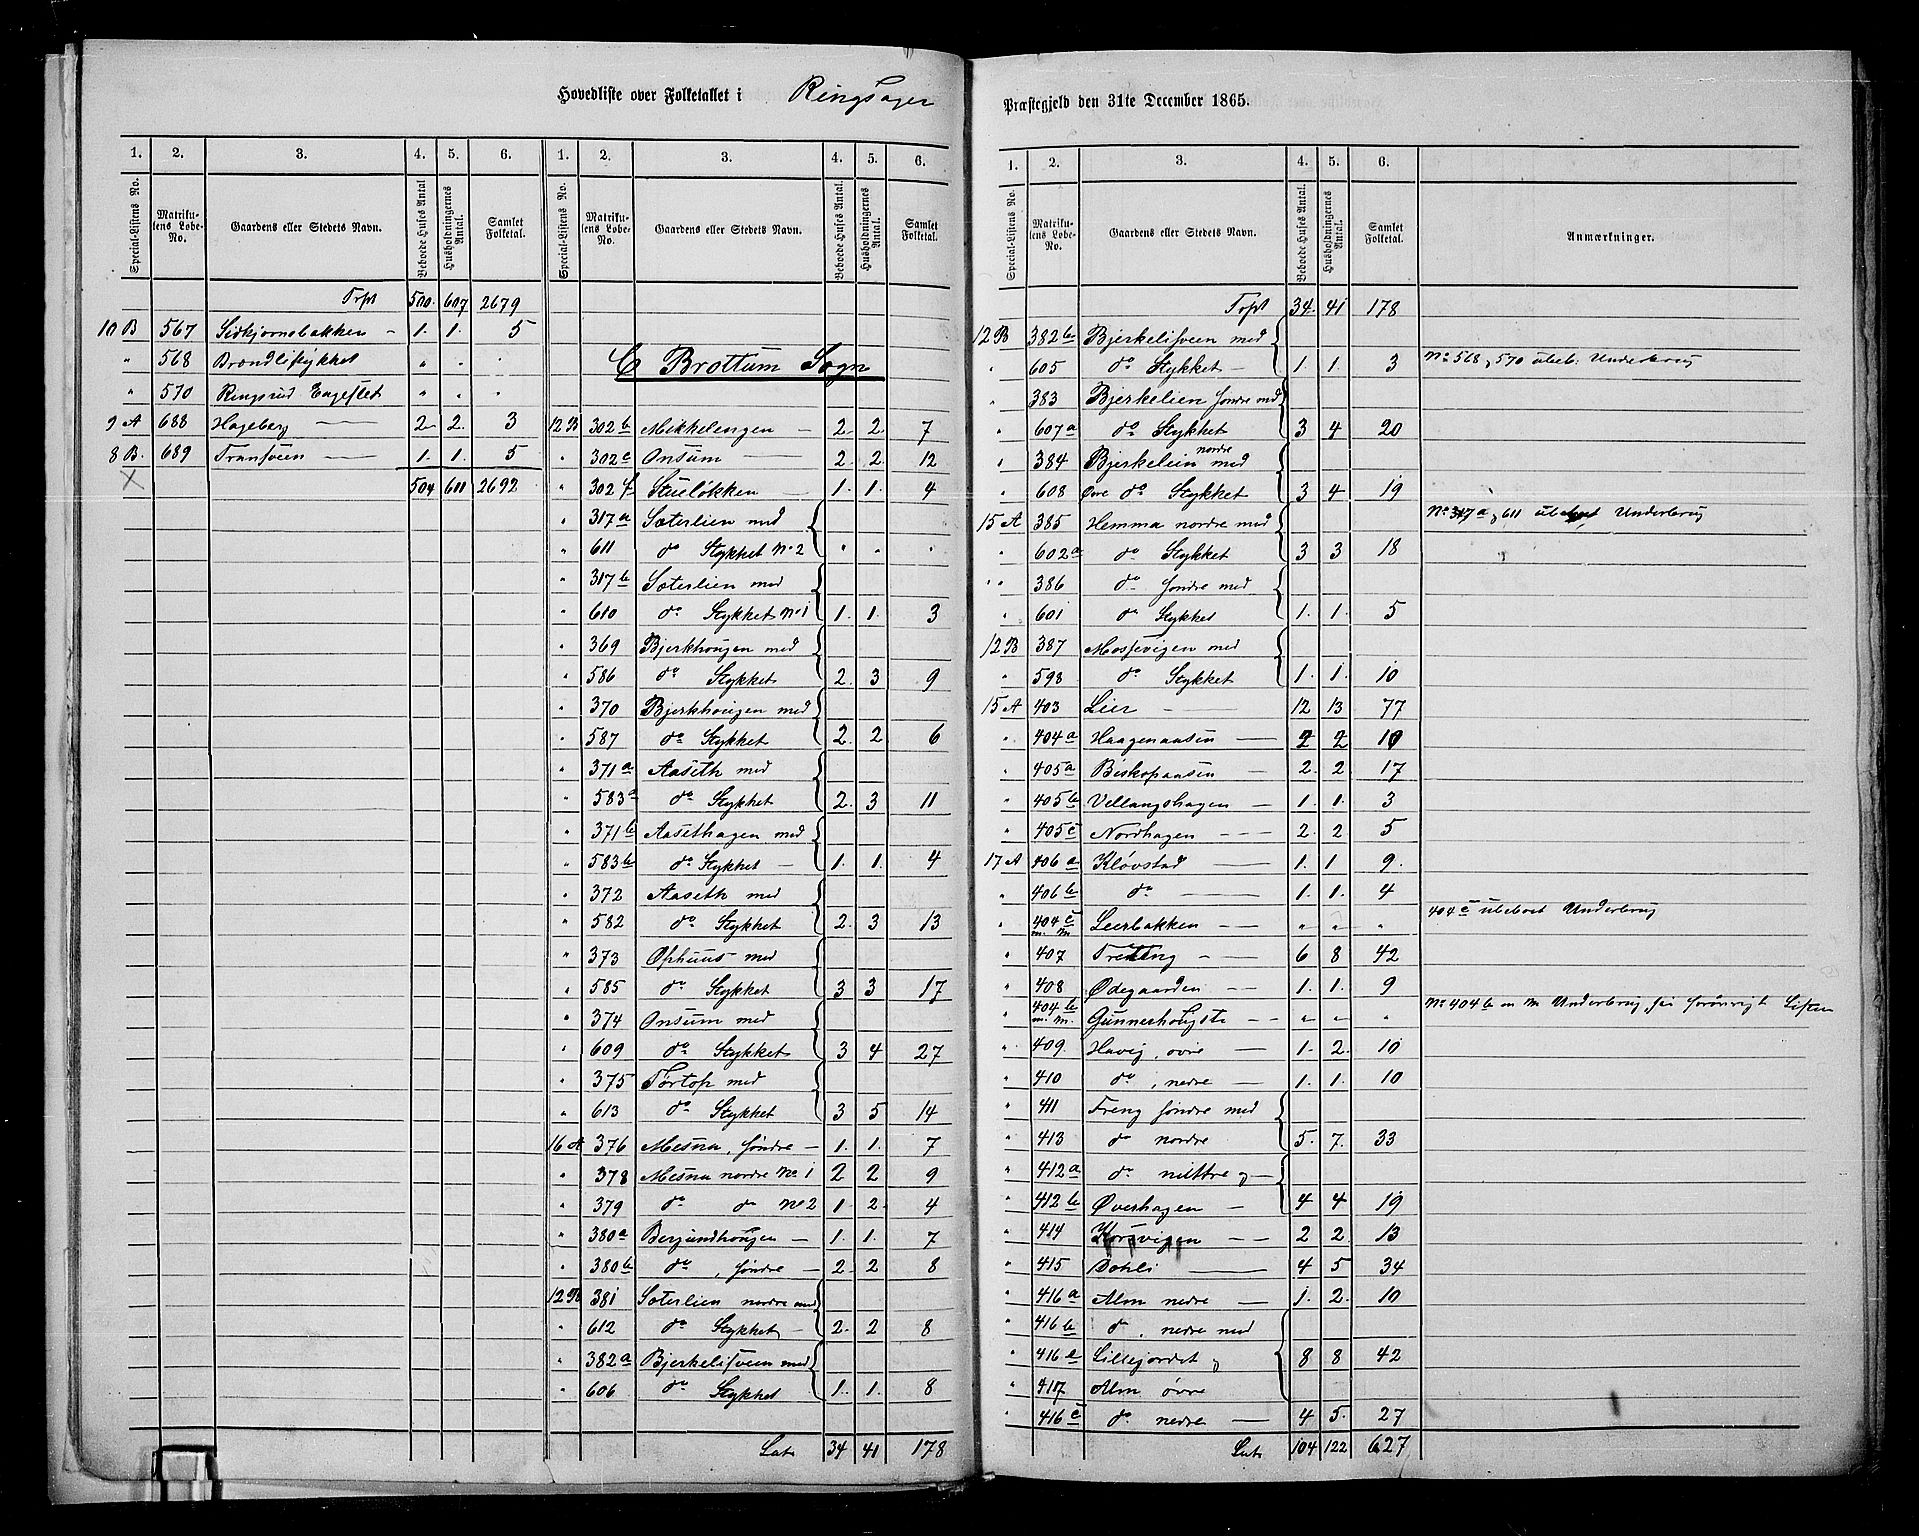 Hovedliste over Folketallet i Ringsager
1. 2. 3. 4. 5. 6.
Special-Listens No. Matrikulens Løbe-No. Gaardens eller Stedets Navn. Beboede Huses Antal Husholdningernes Antal. Samlet Folketal.
Trpt 500. 607 2679
10 B 567 1. 1. 5
" 568 " " "
" 570 Ringsrud Engeslet " " "
9 A 688 Hageberg 2 2. 3
8 B. 689 1. 1. 5
X 504 611 2692
1. 2. 3. 4. 5. 6.
Special-Listens No. Matrikulens Løbe-No. Gaardens eller Stedets Navn. Beboede Huses Antal. Husholdningernes Antal. Samlet Folketal.
C Brøttum Sogn
12 B 302 b Mikkelengen 2 2. 7
" 302 c Onsum 2. 2. 12
" 302 f Stueløkken 1. 1. 4
" 317 a Sæterlien med
" 611 do Stykket No 2 " " "
" 317 b Sæterlien med
" 610 do Stykket No 1 1. 1. 3
" 369 Bjerkhougen med
" 586 do Stykket 2. 3 9
" 370 Bjerkhougen med
" 587 do Stykket 2. 2 6
" 371 a Aaseth med
" 583 a do Stykket 2. 3 11
" 371 b Aasethagen med
" 583 b do Stykket 1. 1. 4
" 372 Aaseth med
" 582 do Stykket 2. 3 13
" 373 Ophuus med
" 585 do Stykket 3 3 17
" 374 Onsum med
" 609 do Stykket 3 4 27
" 375 Tørtop med
" 613 do Stykket 3 5 14
16 A 376 Mesna, søndre 1. 1. 7
" 378 Mesna nordre No 1 2 2 9
" 379 do do No 2 1. 2. 4
" 380 a Berjundhougen 1. 1. 7
" 380 b do, søndre 2. 2 8
12 B 381 Sæterlien nordre med
" 612 do Stykket 2. 2 8
" 382 a Bjerkelisveen med
" 606 do Stykket 1. 1. 8
Lat 34 41 178
Præstegjeld den 31te December 1865.
1. 2. 3. 4. 5. 6.
Special-Listens No. Matrikulens Løbe-No. Gaardens eller Stedets Navn. Beboede Huses Antal. Husholdningernes Antal. Samlet Folketal. Anmærkninger.
Trpt 34. 41 178
12 B 382 b Bjerkelisveen med
" 605 do Stykket 1. 1. 3 No 568 & 570 ubeb: Underbrug
" 383 Bjerkelien søndre med
" 607 a do Stykket 3 4 20
" 384 Bjerkelien nordre med
" 608 Øvre do Stykket 3 4 19
15 A 385 Hemma nordre med No 317 a & 611 ubeboet Underbrug
" 602 a do Stykket 3 3 18
" 386 do søndre med
" 601 do Stykket 1. 1. 5
12 B 387 Mosevigen med
" 598 do Stykket 1. 1. 10
15 A 403 Lier 12 13 77
" 404 a Haagenaasen 2 2 10
" 405 a Biskopaasen 2. 2. 17
" 405 b Vellangshagen 1. 1. 3
" 405 c Nordhagen 2. 2 5
17 A 406 a Kløvstad 1. 1 9.
" 406 b do 1. 1. 4
" 404 c m. M Leerbakken " " " 404 c ubeboet Underbrug
" 407 6 8 42
" 408 Ødegaarden 1. 1. 9
" 404 b m. M. " " " No 404 b m M Underbrug
" 409. Havig, øvre 1. 2. 10
" 410 do, nedre 1. 1. 10
" 411 Freng søndre med
" 413 do nordre 5. 7. 33
" 412 a do mittre &
" 412 b Øverhagen 4 4 19
" 414 Korsvigen 2 2. 13
" 415 Dohli 4 5 34
" 416 a Alm nedre 1. 2. 10
" 416 b do, nedre med
" 416 e Lillejordet & 8 8 42
" 417 Alm øvre
" 416 c do nedre 4 5. 27
Lat 104 122 627